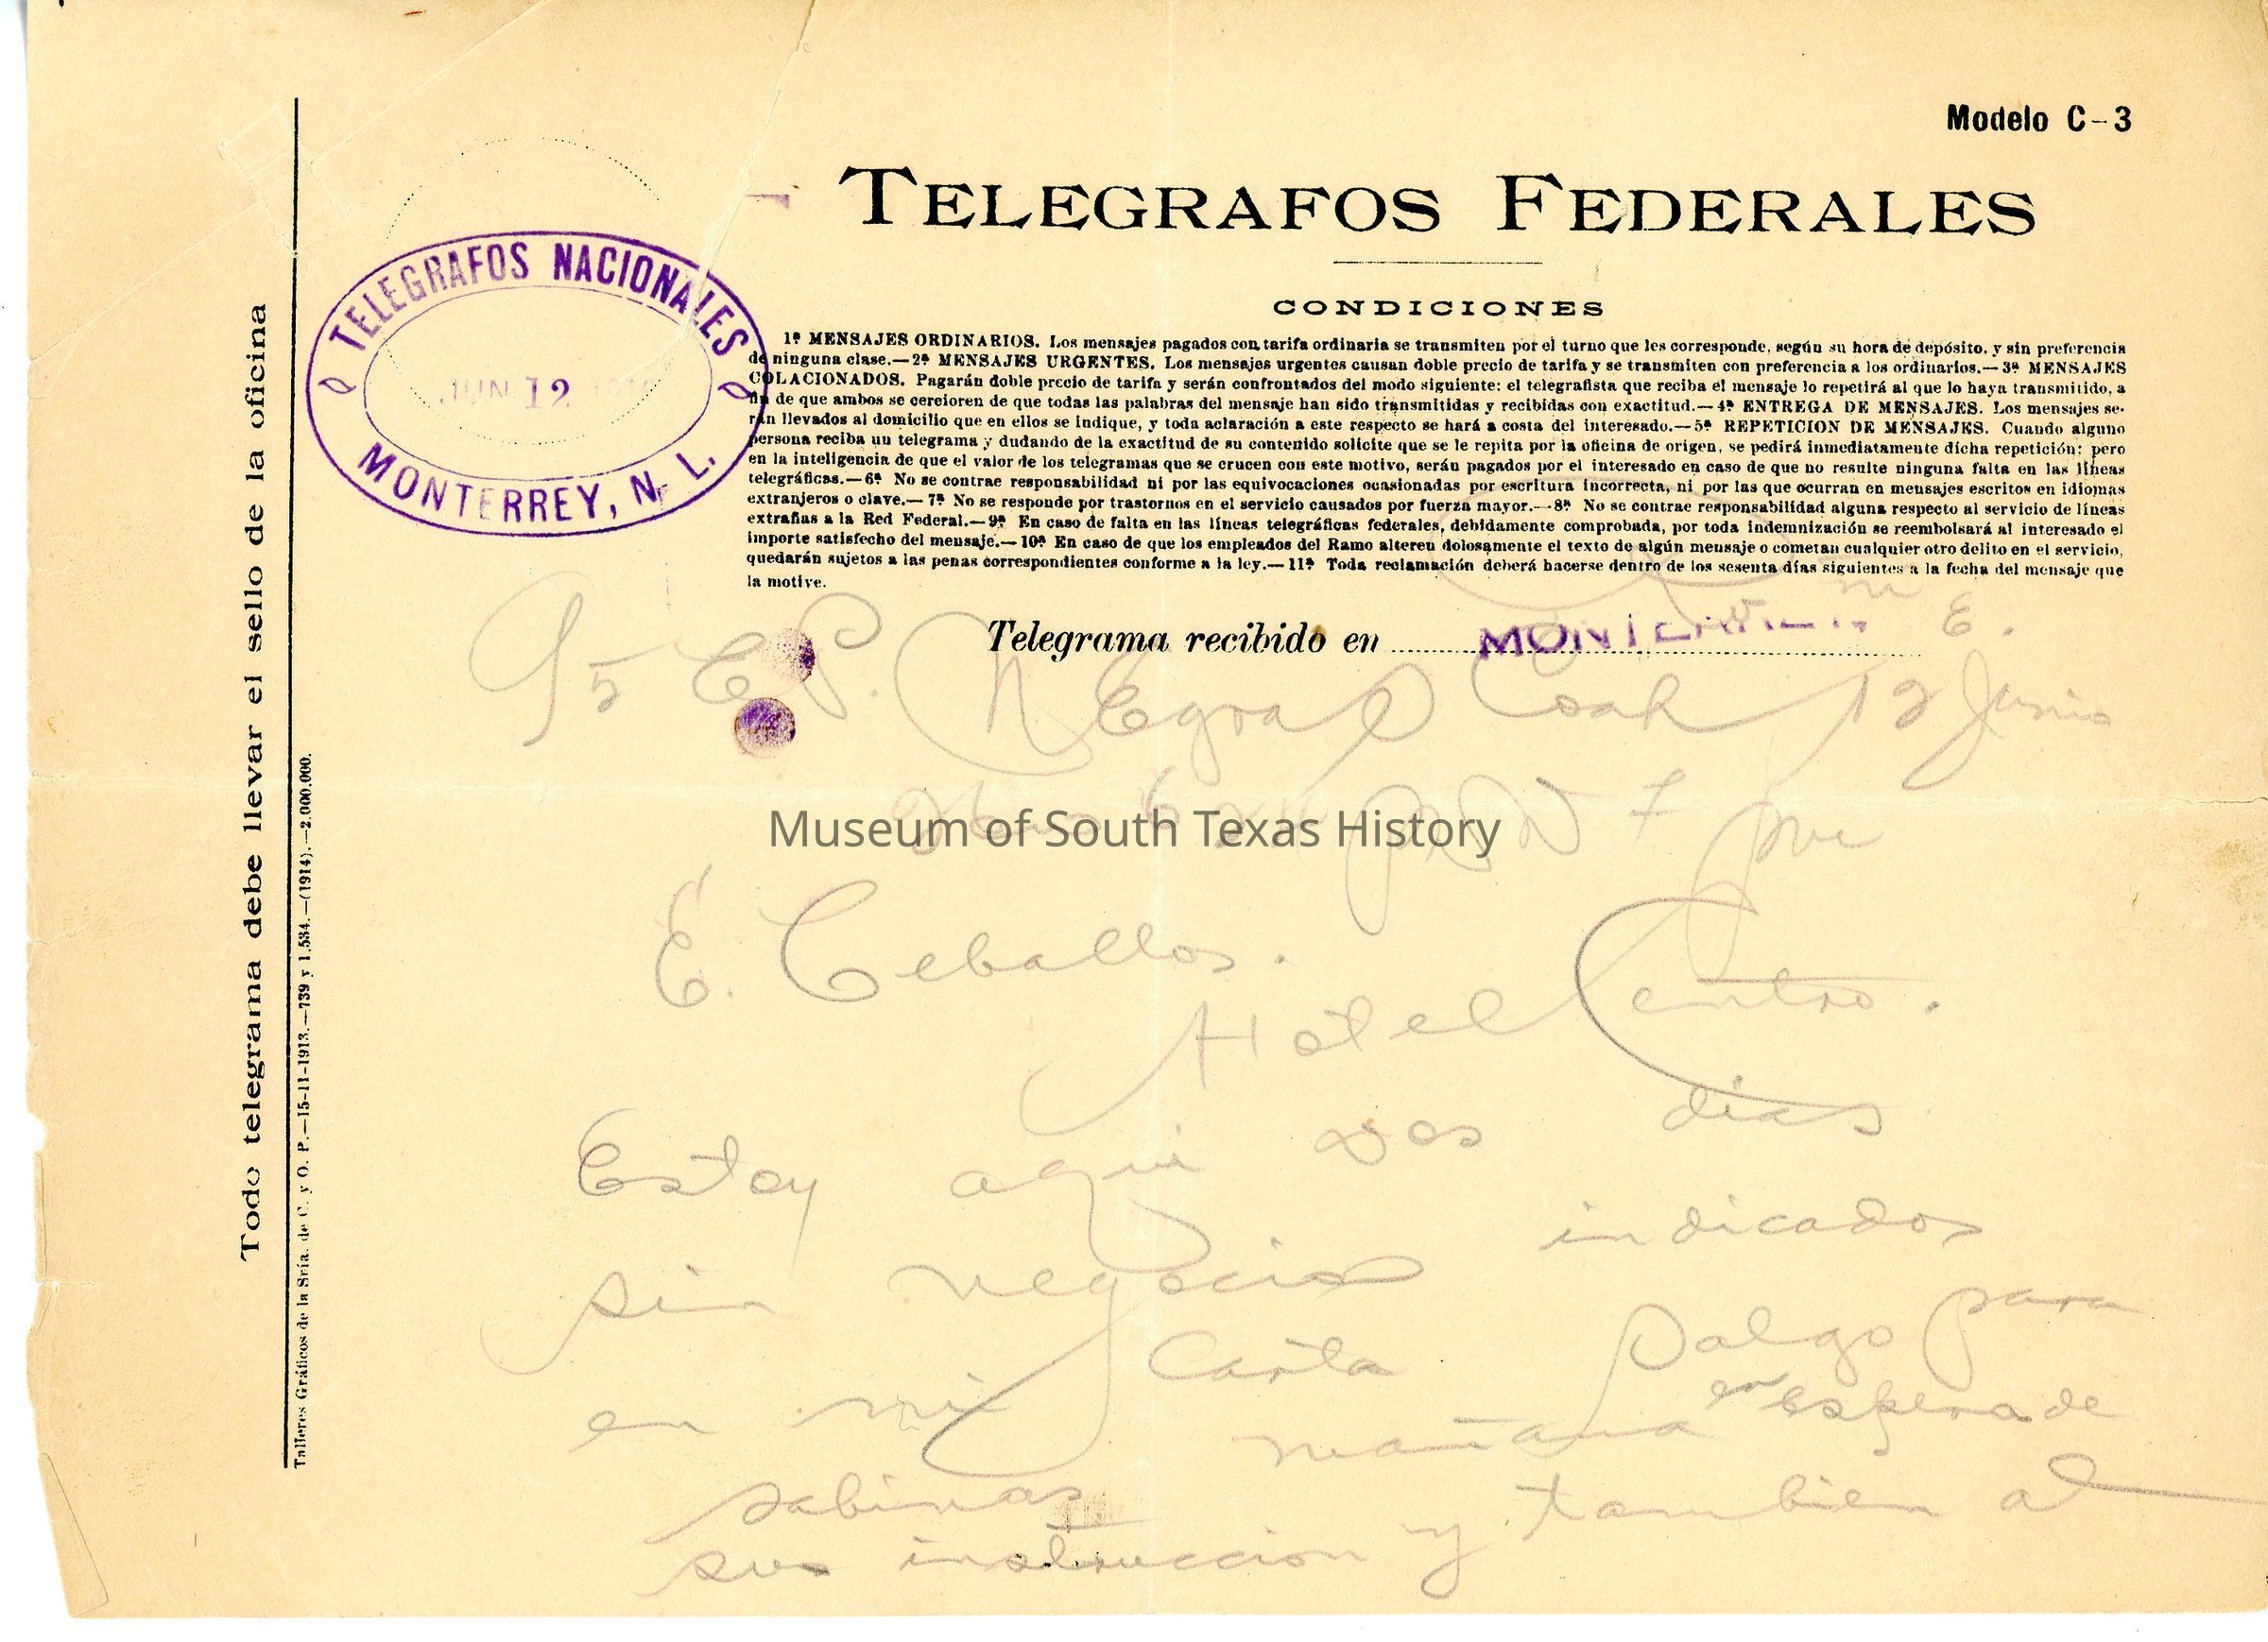 Modelo C-3
TELEGRAFOS FEDERALES
CONDICIONES
1ª MENSAJES ORDINARIOS. Los mensajes pagados con tarifa ordinaria se transmiten por el turno que les corresponde, según su hora de depósito, y sin preferencia
de ninguna clase.—2ª MENSAJES URGENTES. Los mensajes urgentes causan doble precio de tarifa y se transmiten con preferencia a los ordinarios.—3ª MENSAJES
COLACIONADOS. Pagarán doble precio de tarifa y serán confrontados del modo siguiente: el telegrafista que reciba el mensaje lo repetirá al que lo haya transmitido, a
fin de que ambos se cercioren de que todas las palabras del mensaje han sido transmitidas y recibidas con exactitud.—4ª ENTREGA DE MENSAJES. Los mensajes se-
rán llevados al domicilio que en ellos se indique, y toda aclaración a este respecto se hará a costa del interesado.—5ª REPETICION DE MENSAJES. Cuando alguno
persona reciba un telegrama y dudando de la exactitud de su contenido solicite que se le repita por la oficina de origen, se pedirá inmediatamente dicha repetición; pero
en la inteligencia de que el valor de los telegramas que se crucen con este motivo, serán pagados por el interesado en caso de que no resulte ninguna falta en las líneas
telegráficas.—6ª No se contrae responsabilidad ni por las equivocaciones ocasionadas por escritura incorrecta, ni por las que ocurran en mensajes escritos en idiomas
extranjeros o clave.—7ª No se responde por trastornos en el servicio causados por fuerza mayor.—8ª No se contrae responsabilidad alguna respecto al servicio de líneas
extrañas a la Red Federal.—9ª En caso de falta en las líneas telegráficas federales, debidamente comprobada, por toda indemnización se reembolsará al interesado el
importe satisfecho del mensaje.—10ª En caso de que los empleados del Ramo alteren dolosamente el texto de algún mensaje o cometan cualquier otro delito en el servicio,
quedarán sujetos a las penas correspondientes conforme a la ley.—11ª Toda reclamación deberá hacerse dentro de los sesenta días siguientes a la fecha del mensaje que
la motive.
TELEGRAFOS NACIONALES
JUN 12
MONTERREY, N. L.
Todo telegrama debe llevar el sello de la oficina
Talleres Gráficos de la Sría. de C. y O. P.—15-11-1913.—739 y 1,534.—(1914).—2.000,000.
Telegrama recibido en MONTERREY
E. P. Negras Coah 12 Junio
Museum of South Texas History
E. Ceballos.
Hotel Centro.
Estoy aqui dos dias
sin negocio indicados
en mi Carta Salgo para
sabinas mañana en espera de
sus instruccion y tambien al